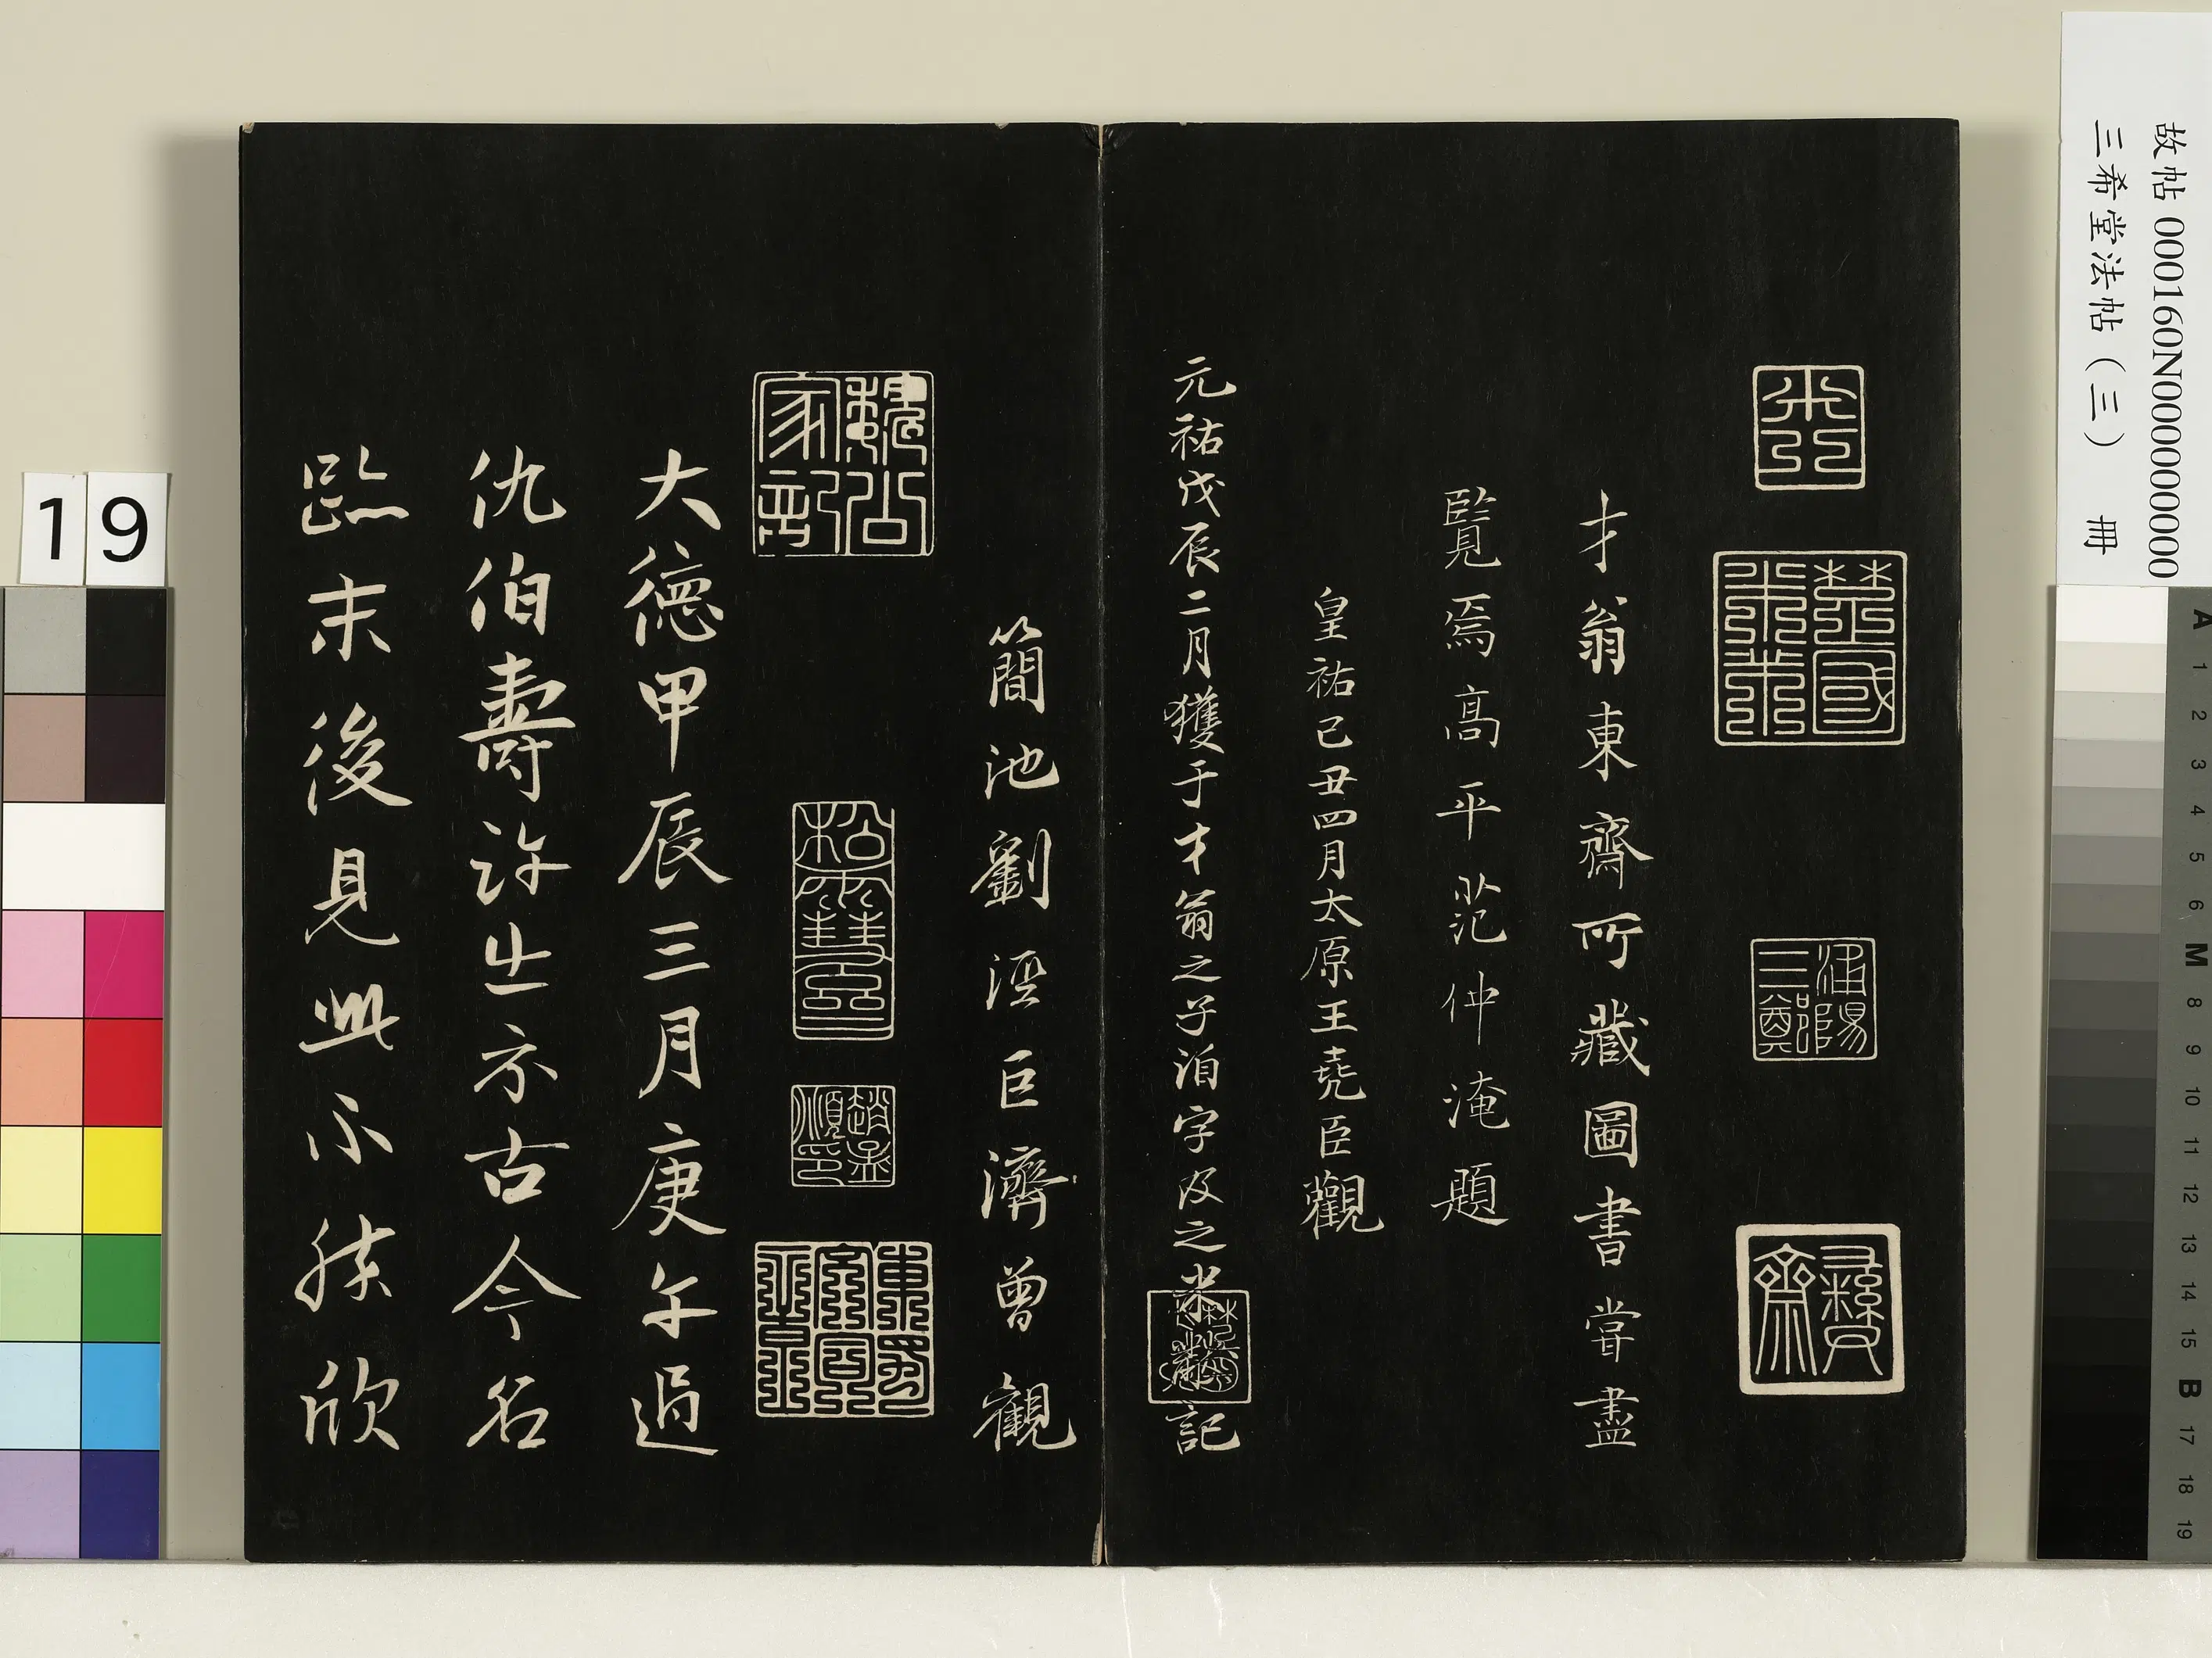 故帖 000160N000000000
三希堂法帖（三） 冊
彝齋
才翁東齋所藏圖書嘗盡
覽焉高平范仲淹題
皇祐己丑四月太原王堯臣觀
元祐戊辰二月獲于才翁之子洎字及之米黻記
簡池劉涇巨濟曾觀
大德甲辰三月庚午過
仇伯壽許出示古今名
跡末後見此不勝欣
19
A 1 2 3 4 5 6 M 8 9 10 11 12 13 14 15 B 17 18 19